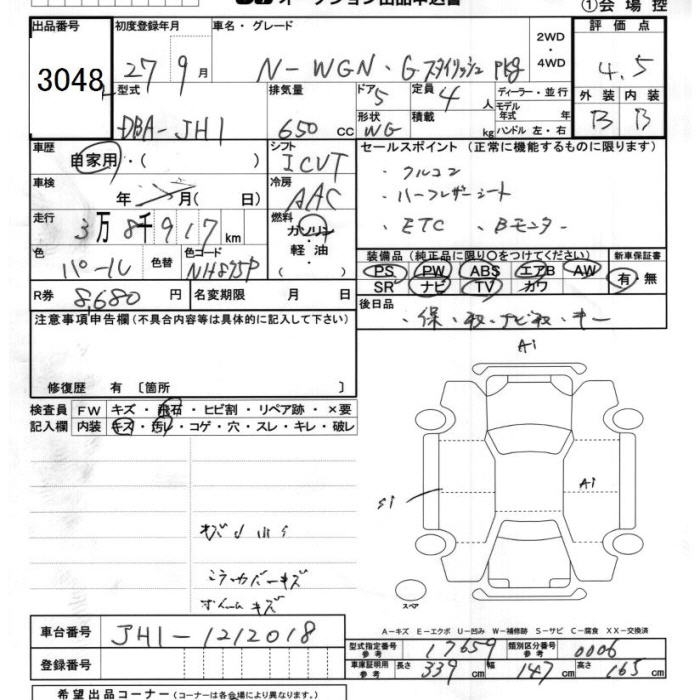 オークション出品申込書
①会場控
出品番号 初度登録年月 車名・グレード 2WD ・ 4WD 評価点
3048 27 9月 N-WGN・Gスタイリッシュ PKg 4.5
型式 排気量 ドア 5 定員 4人 ディーラー・並行 外装 内装
モデル年式 年
DBA-JH1 650cc 形状 WG 積載 kg ハンドル 左・右 B B
車歴 シフト セールスポイント (正常に機能するものに限ります)
自家用・( ) ICVT ・クルコン
車検 冷房 ・ハーフレザーシート
年 月(日) AAC ・ETC ・Bモニター
走行 燃料
3万8千917km ガソリン・
軽油・( )
色 色替 色コード
パール NH875P
装備品 (純正品に限り○をつけてください) 新車保証書
PS PW ABS エアB AW 有・無
SR ナビ TV カワ
R券 8,680円 名変期限 月 日
後日品
・保・取・ナビ取・キー
注意事項申告欄(不具合内容等は具体的に記入して下さい)
修復歴 有 [箇所 ]
検査員 FW キズ・飛石・ヒビ割・リペア跡・×要
記入欄 内装 キズ・汚レ・コゲ・穴・スレ・キレ・破レ
A1
A1
S1
キズ
ミラーカバーキズ
ホイールキズ
スペア
A-キズ E-エクボ U-凹み W-補修跡 S-サビ C-腐食 XX-交換済
車台番号 JH1-1212018
型式指定番号 参考 17659 類別区分番号 参考 0006
登録番号
車庫証明用 参考 長さ 339cm 幅 147cm 高さ 165cm
希望出品コーナー (コーナーは各会場により異なります。)